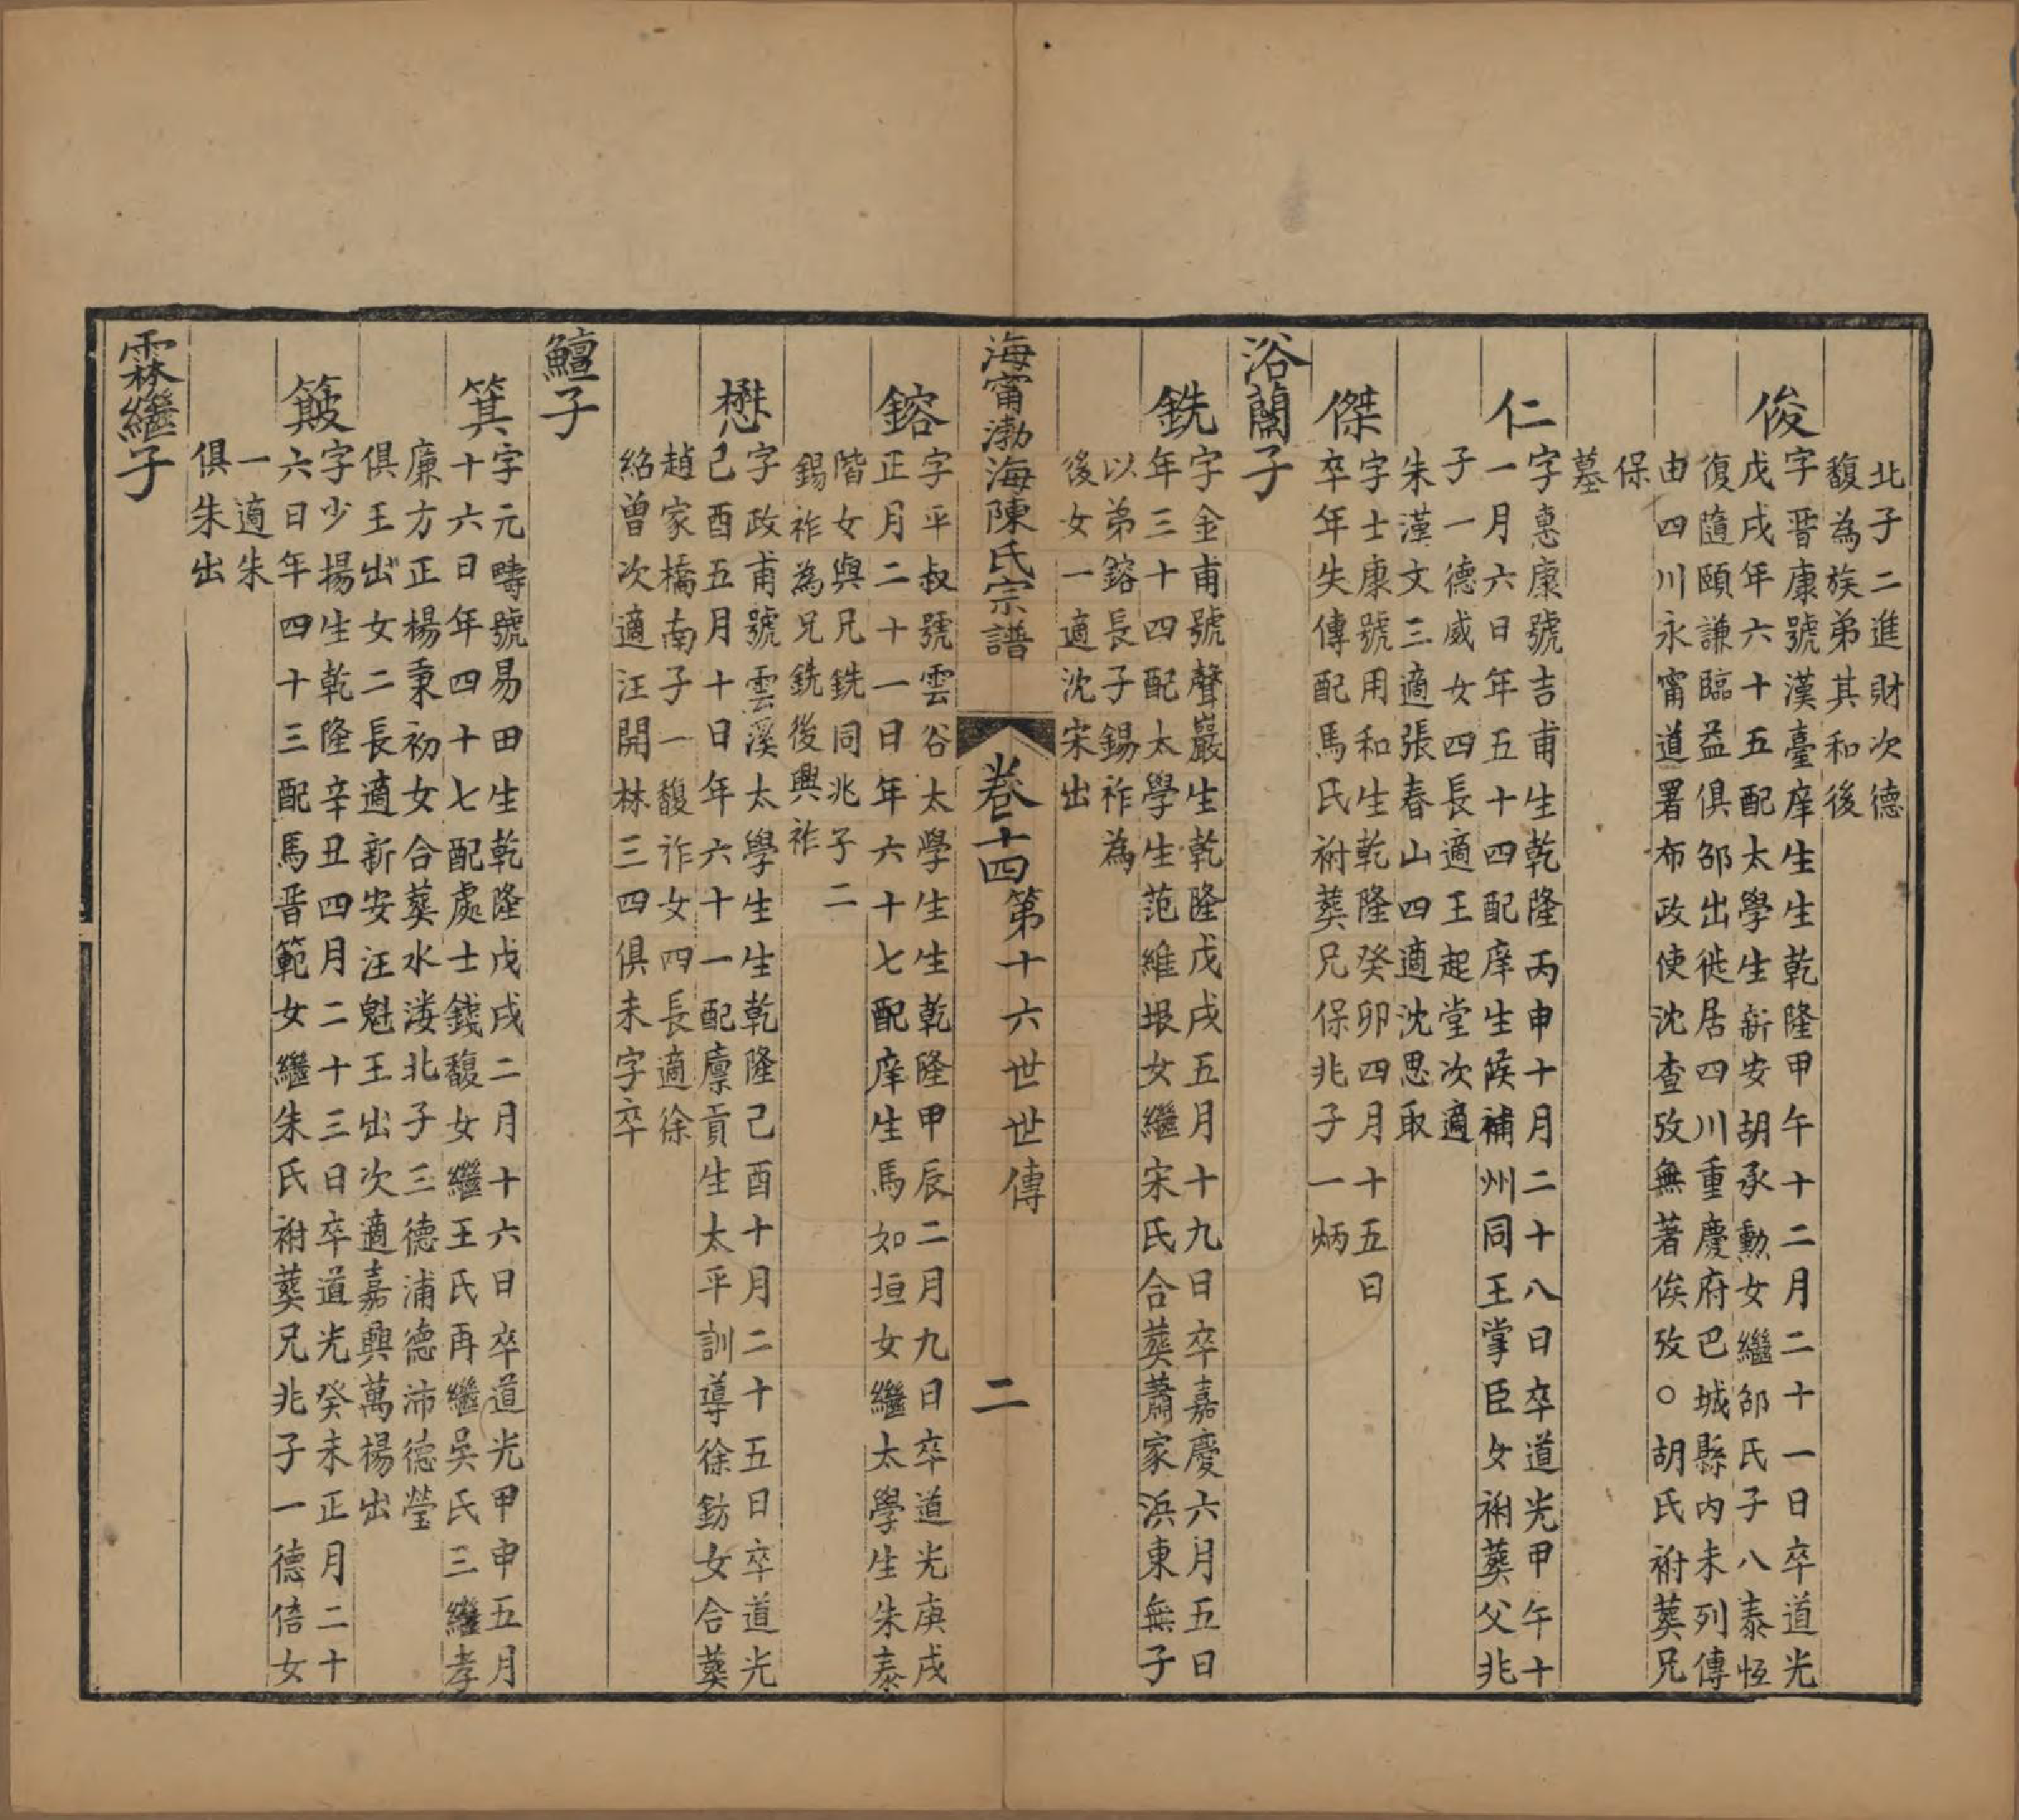 北子二進財次德
馥為族弟其和後
俊
字晋康號漢臺庠生生乾隆甲午十二月二十一日卒道光
戊戌年六十五配太學生新安胡承勳女繼邰氏子八泰恆
復隨頤謙臨益俱邰出徙居四川重慶府巴城縣內未列傳
由四川永甯道署布政使沈查攷無著俟攷○胡氏祔葬兄
保
墓
仁
字惠康號吉甫生乾隆丙申十月二十八日卒道光甲午十
一月六日年五十四配庠生候補州同王掌臣女祔葬父兆
子一德威女四長適王起堂次適
朱漢文三適張春山四適沈思取
傑
字士康號用和生乾隆癸卯四月十五日
卒年失傳配馬氏祔葬兄保兆子一炳
浴蘭子
銑
字金甫號聲巖生乾隆戊戌五月十九日卒嘉慶六月五日
年三十四配太學生范維垠女繼宋氏合葬蕭家浜東無子
以弟鎔長子錫祚為
後女一適沈宋出
海甯渤海陳氏宗譜
卷十四 第十六世世傳
二
鎔
字平叔號雲谷太學生生乾隆甲辰二月九日卒道光庚戌
正月二十一日年六十七配庠生馬如垣女繼太學生朱泰
階女與兄銑同兆子二
錫祚為兄銑後興祚
懋
字政甫號雲溪太學生生乾隆己酉十月二十五日卒道光
己酉五月十日年六十一配廩貢生太平訓導徐鈁女合葬
趙家橋南子一馥祚女四長適徐
紹曾次適汪開林三四俱未字卒
鱣子
箕
字元疇號易田生乾隆戊戌二月十六日卒道光甲申五月
十六日年四十七配處士錢馥女繼王氏再繼吳氏三繼孝
廉方正楊秉初女合葬水漊北子三德浦德沛德瑩
俱王出女二長適新安汪魁王出次適嘉興萬楊出
簸
字少揚生乾隆辛丑四月二十三日卒道光癸未正月二十
六日年四十三配馬晋範女繼朱氏祔葬兄兆子一德倍女
一適朱
俱朱出
霖繼子